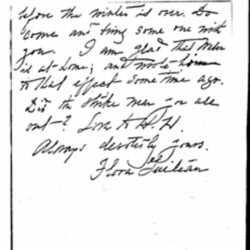 before the winter is over. Do
come and bring some one with
you. I am glad that Mrs
is at home; and wrote him
to that effect some time ago.
Did the strike wear you all
out? Love to H. H.
Always devotedly yours,
Flora